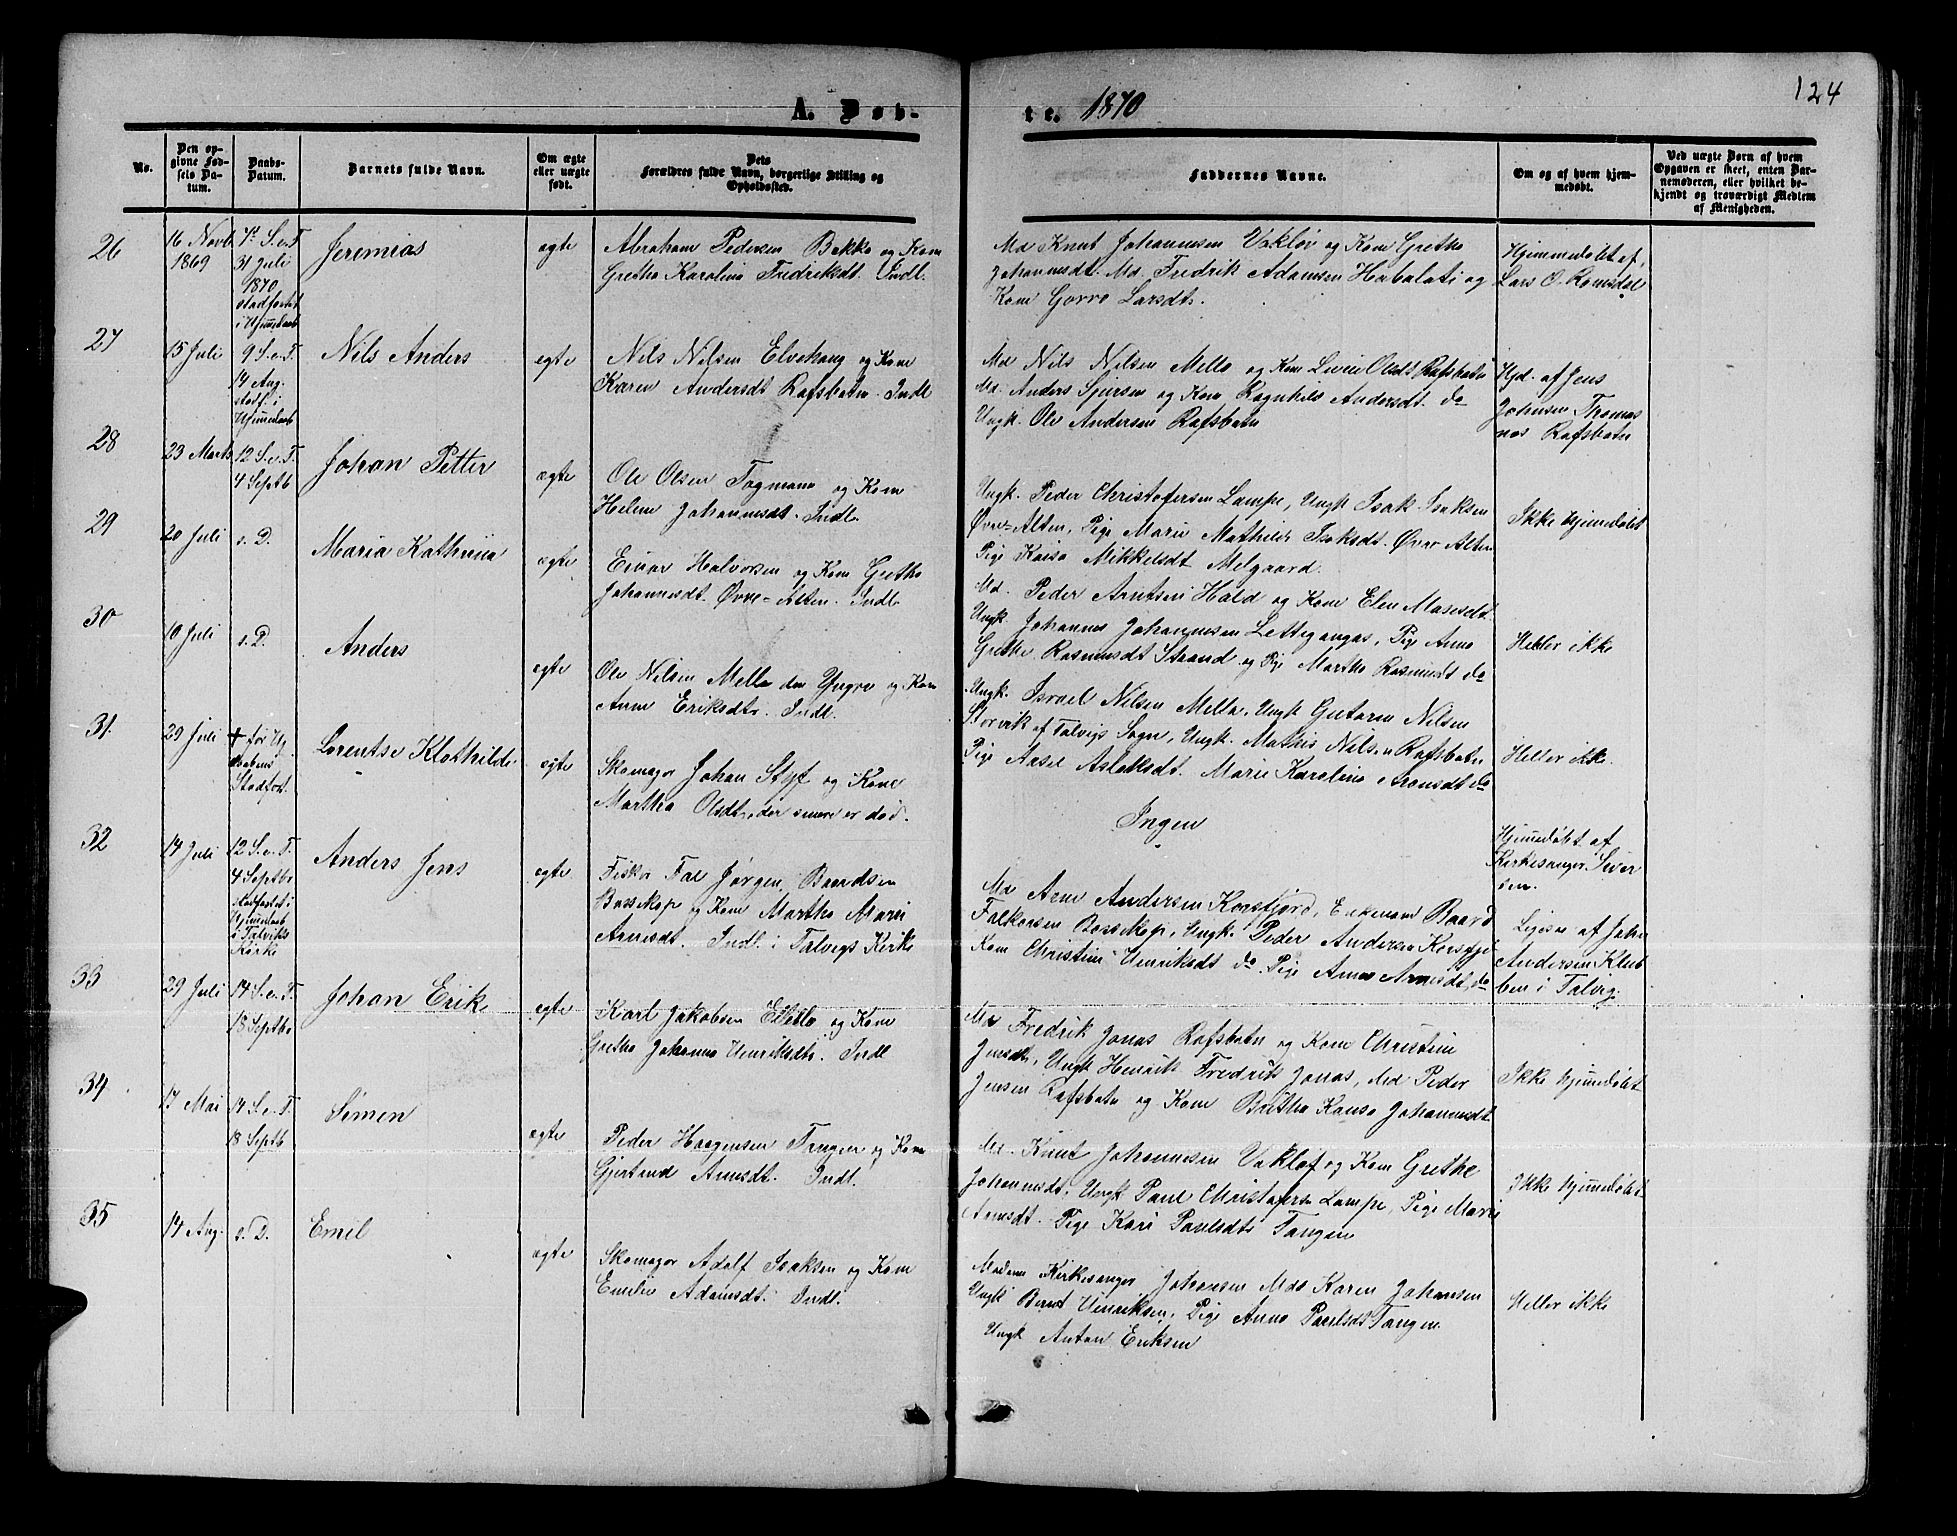 124
A. Døb-
te. 1870
No.
Den op-
givne Fød-
sels Da-
tum.
Daabs-
Datum.
Barnets fulde Navn.
Om ægte
eller uægte
født.
Dets
Forældres fulde Navn, borgerlige Stilling og
Opholdssted.
Faddernes Navne.
Om og af hvem hjem-
medøbt.
Ved uægte Børn af hvem
Opgaven er skeet, enten Bar-
nemoderen, eller hvilket be-
kjendt og troværdigt Medlem
af Menigheden.
26
16 Novb
1869
7de S. e. T
31 Juli
1870
stadfæstet
i Hjemmedaab
Jeremias
ægte
Abraham Pedersen Bakke og Kone
Grethe Karoline Fredriksdt. Indl.
Md Knut Johannesen Vakløv og Kone Grethe
Johannesdt. Md. Fredrik Adamsen Habalati og
Kone Gorro Larsdt.
Hjemmedøbt af
Lars O. Romsdal
27
15 Juli
9 S. e. T.
14 Aug.
stadf. i
Hjemmedaab
Nils Anders
egte
Nils Nilsen Elvebang og Kone
Karen Andersdt Rafsbotn. Indl
Md Nils Nilsen Mella og Kone Livin Olsdt Rafsbotn
Md. Anders Sjursen og Kone Ragnhild Andersdt. do
Ungk. Ole Andersen Rafsbotn
Hjd. af Jens
Johnsen Thomas
nes Rafsbotn
28
23 Marts
12 S. e. T.
4 Septb
Johan Petter
ægte
Ole Olsen Togmana og Kone
Helene Johannesdt. Indl.
Ungk. Peder Christofersen Lampe, Ungk Isak Isaksen
Øvre-Alten, Pige Marie Mathilde Isaksdt. Øvre Alten
Pige Kaisa Mikkelsdt Melgaard.
Ikke hjemmedøbt
29
20 Juli
s. D.
Maria Kathrina
ægte
Einar Halvorsen og Kone Grethe
Johannesdt. Øvre-Alten. Indl.
Md. Peder Arntsen Hald og Kone Elen Masesdt.
Ungk. Johannes Johannesen Lettegangas, Pige Anne
Grethe Rasmusdt Strand og Pige Marthe Rasmusdt do
Heller ikke
30
10 Juli
s. D.
Anders
egte
Ole Nilsen Mella den Yngre og Kone
Anne Eriksdtr. Indl.
Ungk. Israel Nilsen Mella, Ungk Gutorm Nilsen
Storvik af Talvigs Sogn, Ungk. Mathis Nilsen Rafsbotn
Pige Aasel Aslaksdt. Marie Karoline Aronsdt do
Heller ikke.
31.
29 Juli
+ før Hj.
daabens
Stadfæst.
Lorentse Klothilde
egte
Skomager Johan Styf og Kone
Martha Olsdt, der senere er død.
Ingen
Hjemmedøbt af
Kirkesanger Siver
sen.
32
14 Juli
12 S. e. T.
4 Septbr
stadfæstet i
Hjemmedaab
i Talviks
Kirke
Anders Jens
egte
Fisker Fal Jørgen Baardsen
Bossekop og Kone Marthe Marie
Arnesdt. Indl. i Talvigs Kirke
Md Arne Andersen Korsfjord, Enkemand Baard
Falkorsen Bossekop, Ungk. Peder Andersen Korsfjd
Kone Christine Henriksdt do. Pige Anne Arnesdt do
Ligesaa af John
Andersen Klub-
ben i Talvig.
33
29 Juli
14 S. e. T.
18 Septbr
Johan Erik
egte
Karl Jakobsen Ellilä og Kone
Grethe Johanna Henriksdt. Indl
Md Fredrik Jonas Rafsbotn og Kone Christine
Jensdt, Ungk Henrik Fredrik Jonas, Md Peder
Jensen Rafsbotn og Kone Brittha Kausa Johannesdt
Ikke hjemmedøbt
34.
17 Mai
14 S. e. T.
18 Septb
Simen
ægte
Peder Haagensen Tangen og Kone
Gjertrud Arnesdt. Indl.
Md. Knut Johannesen Vakløf og Kone Grethe
Johannesdt, Ungk Paul Christofersen Lampe, Pige Marie
Arnesdt. Pige Kari Paulsdt Tangen
Ikke hjemmedøbt.
35
14 Aug.
s. D.
Emil
ægte
Skomager Adolf Isaksen og Kone
Emilie Adamsdt. Indl.
Madame Kirkesanger Johansen Mdm Karen Johansen
Ungk Bernt Henriksen, Pige Anne Paulsdt Tangen
Ungk Anton Eriksen
Heller ikke